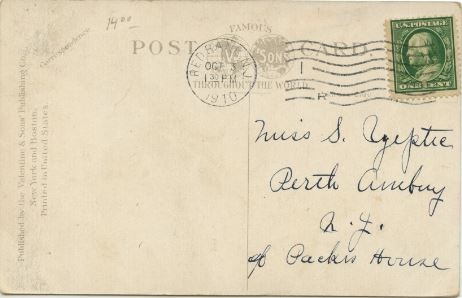 1400
FAMOUS
POST CARD
VALENTINE & SONS
THROUGHOUT THE WORLD
RED BANK N.J.
OCT 3
1 30 PM
1910
R
U.S. POSTAGE
ONE CENT
Correspondence
Published by the Valentine & Sons' Publishing Co.,
New York and Boston.
Printed in United States.
Miss S.
Perth Amboy
N. J.
c/o Packer House